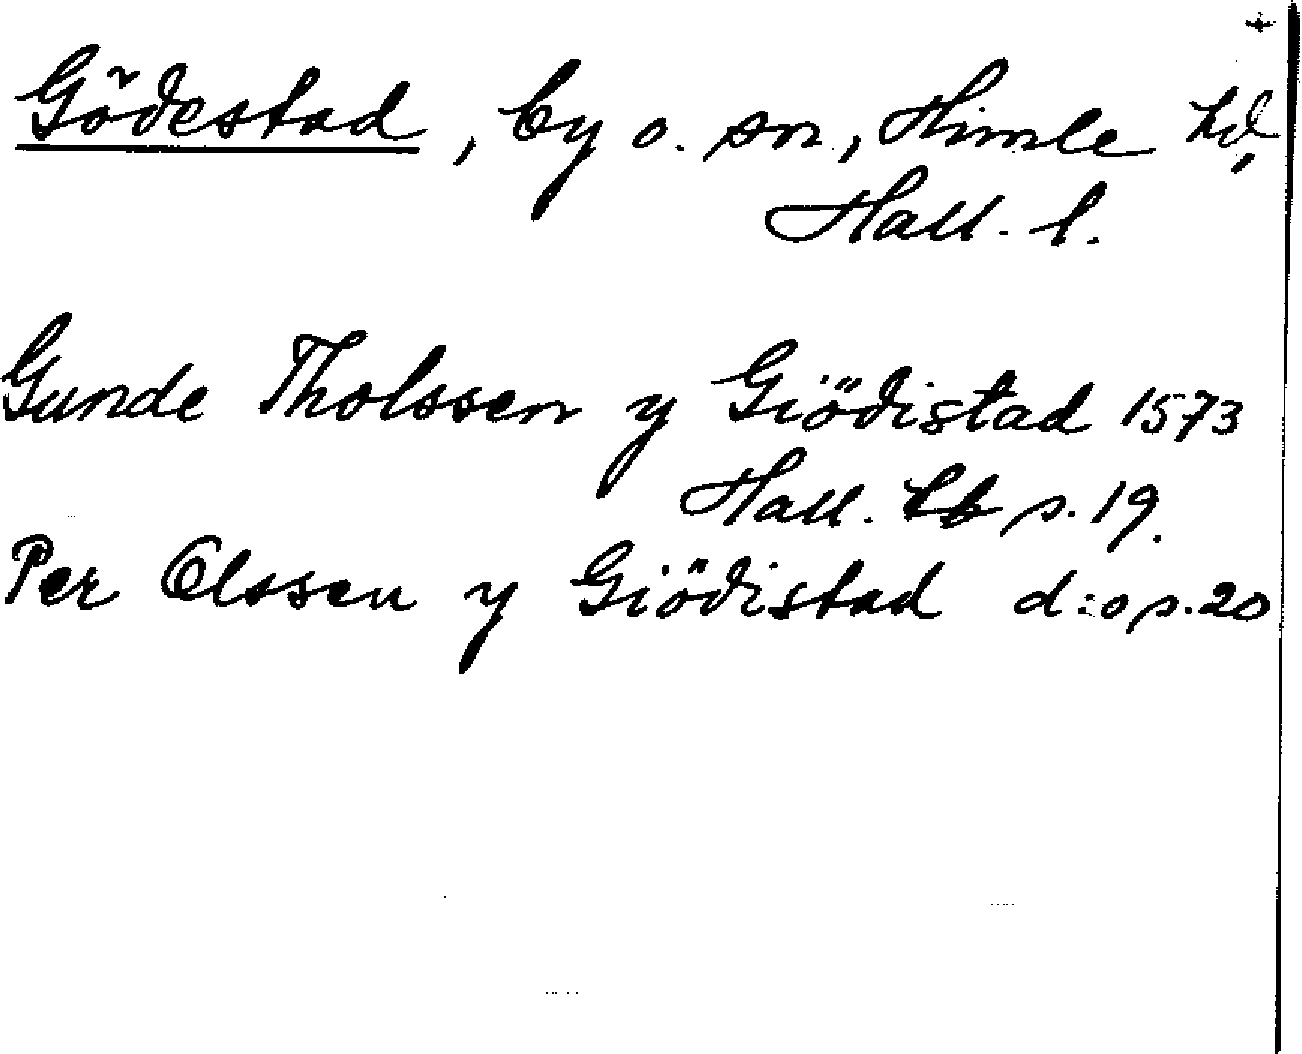 Gödestad, by o. sn, Himle hd,
Hall. l.
Gunde Tholssen y Giödistad 1573
Hall. Lb p. 19.
Per Olssen y Giödistad d:o p. 20